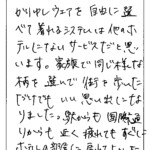 かりゆしウェアを自由に選
べて着れるシステムは他のホ
テルにないサービスだと思
います。家族で同じ様な
柄を選んで街を歩いた
だけでも いい思い出にな
りました。駅からも国際通
りからも近く疲れてもすぐに
ホテルの部屋に戻れて